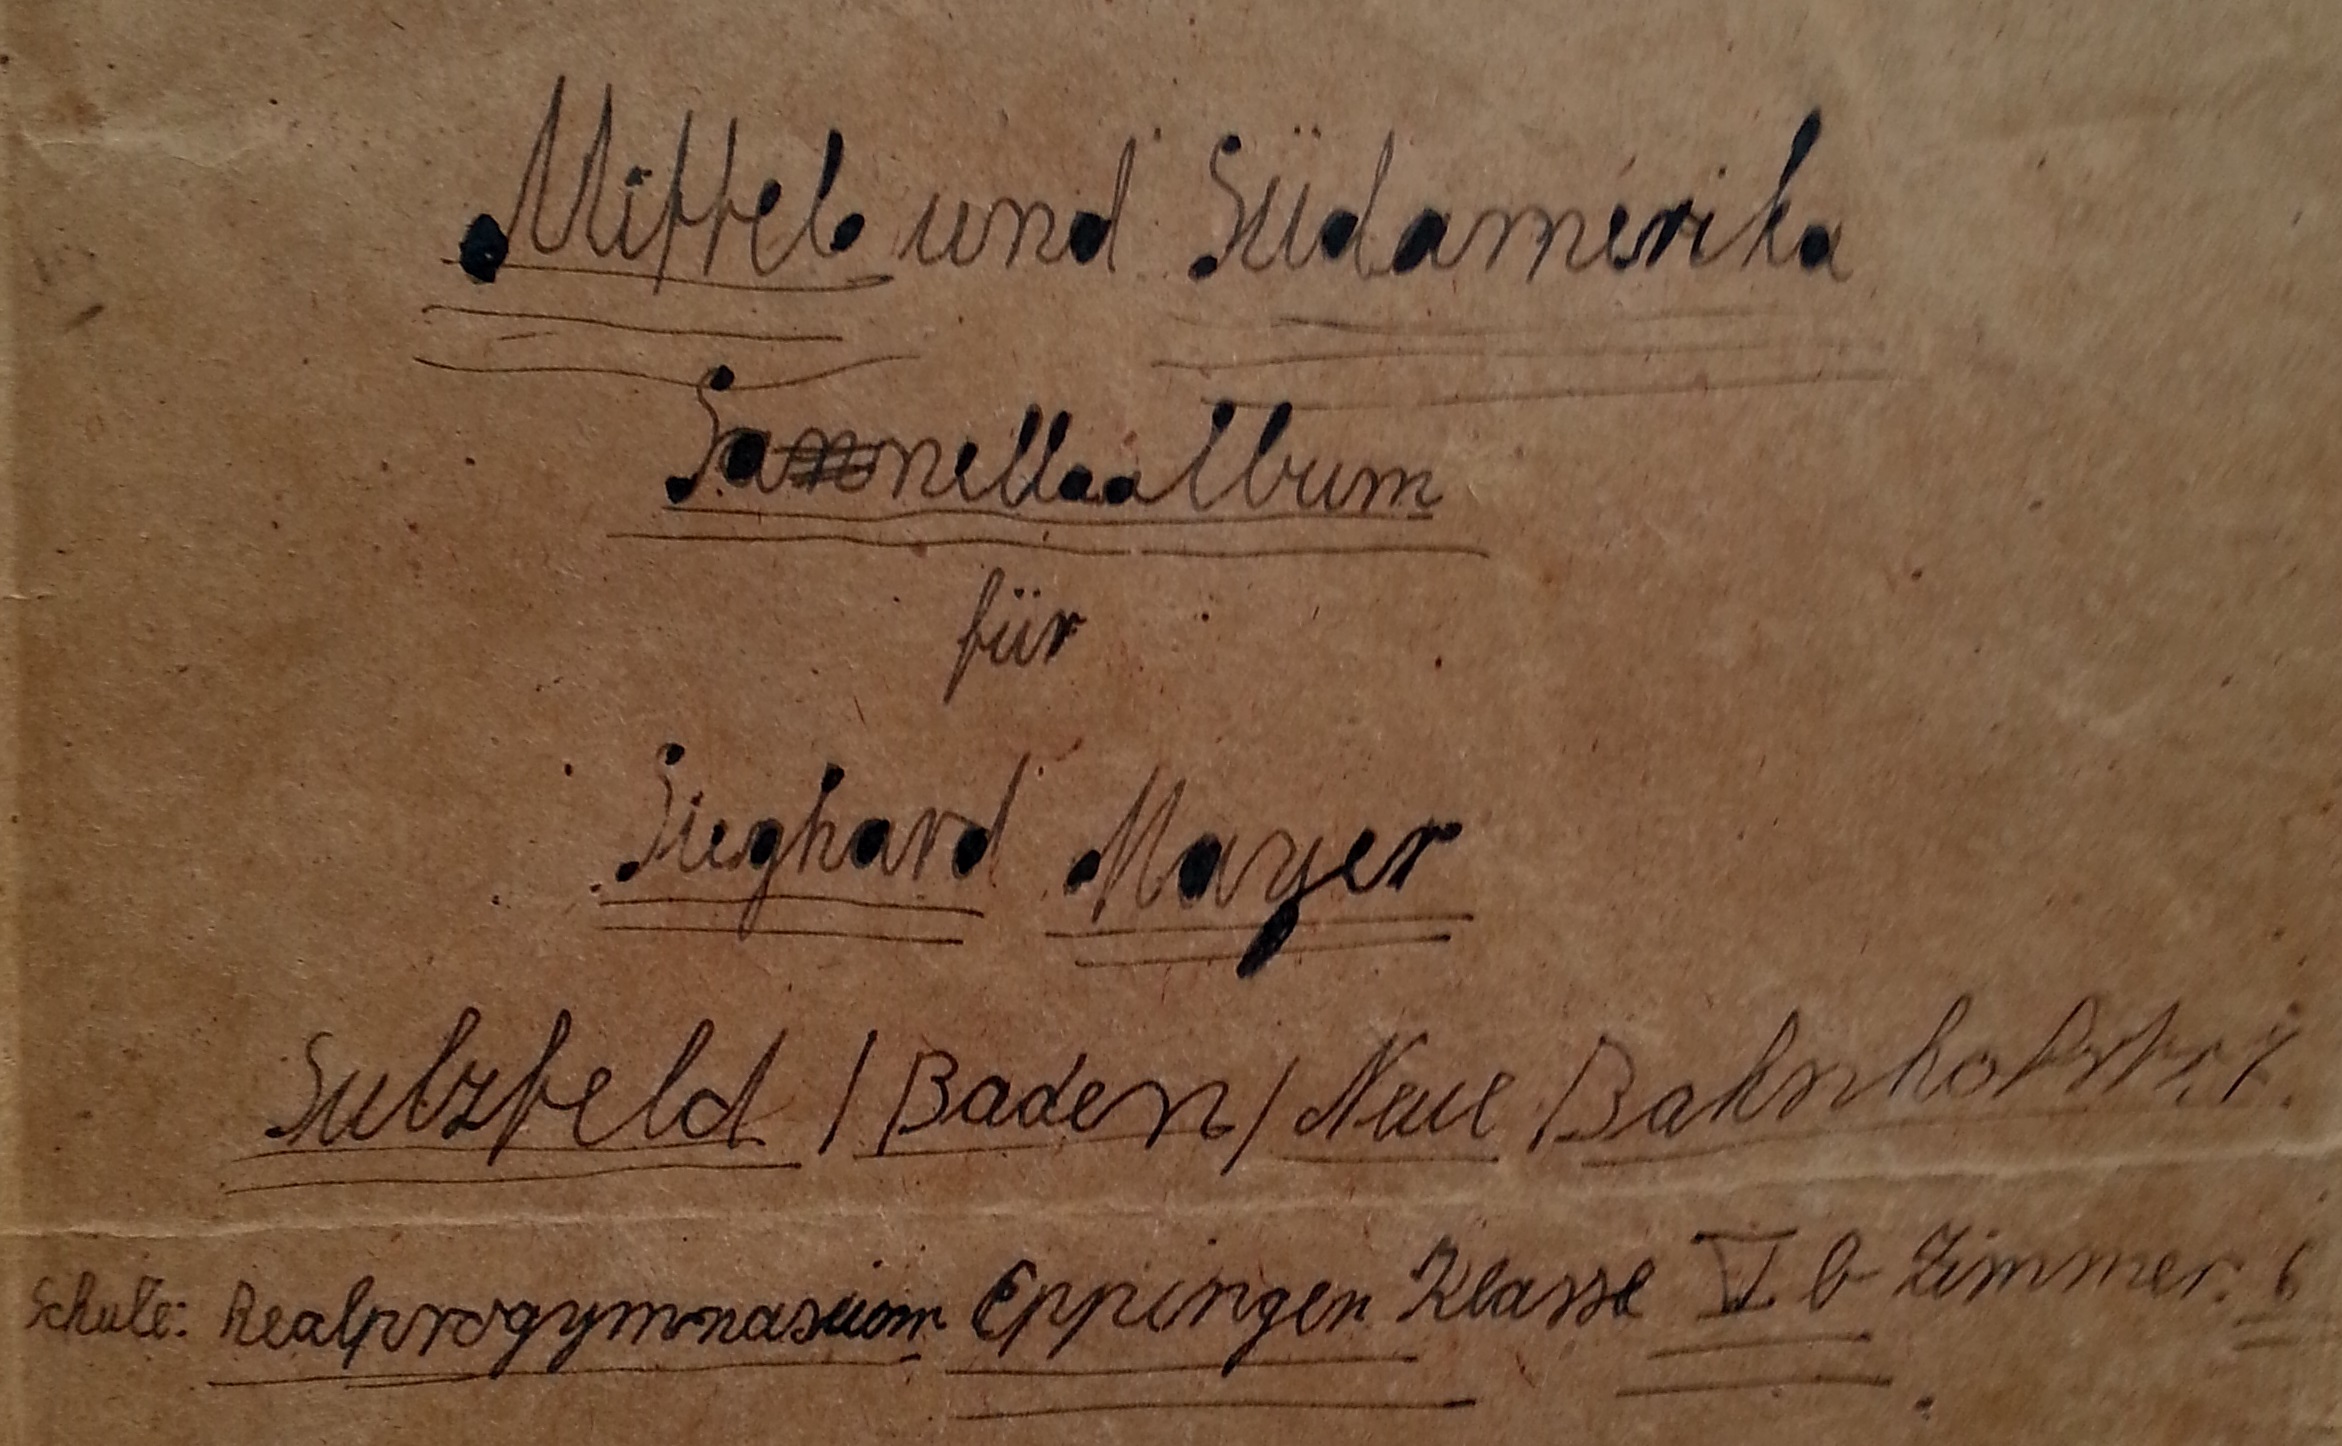 Mittel- und Südamerika
Sammellaalbum
für
Sieghard Mayer
Sulzfeld / Baden / Neue Bahnhofstr.
Schule: Realprogymnasium Eppingen Klasse V b Zimmer: 6